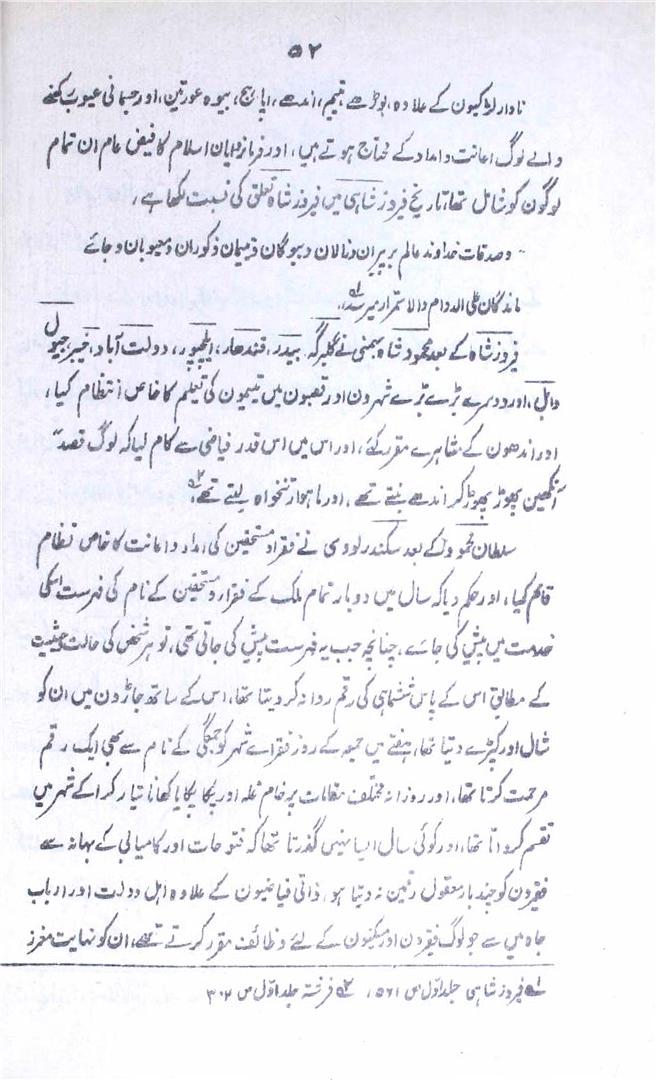 ۵۲
نادار لڑکیون کے علاوہ، بوڑھے، یتیم، اندھے، اپاہج، بیوہ عورتین، اور جسمانی عیوب رکھنے
والے لوگ اعانت و امداد کے محتاج ہوتے ہین، اور فرمانروایان اسلام کا فیض عام ان تمام
لوگون کو شامل تھا، تاریخ فیروز شاہی مین فیروز شاہ تغلق کی نسبت لکھا ہے،
" وصدقات خداوند عالم بر پیران و زالان و بیوگان و یتیمان و کوران و معیوبان و جائے
ماندگان علی الدوام والاستمرار میرسد،
فیروز شاہ کے بعد محمود شاہ بہمنی نے گلبرگہ، بیدر، قندھار، ایلچپور، دولت آباد، خیبر، جیول
دابل، اور دوسرے بڑے بڑے شہرون اور قصبون مین یتیمون کی تعلیم کا خاص انتظام کیا،
اور اندھون کے مشاہرے مقرر کئے، اور اس مین اس قدر فیاضی سے کام لیا کہ لوگ قصداً
آنکھین پھوڑ پھوڑ کر اندھے بنتے تھے، اور ماہوار تنخواہ لیتے تھے،
سلطان محمود کے بعد سکندر لودی نے فقراء و مستحقین کی امداد و اعانت کا خاص نظام
قائم کیا، اور حکم دیا کہ سال مین دو بار تمام ملک کے فقراء و مستحقین کے نام کی فہرست اسکی
خدمت مین پیش کی جائے، چنانچہ جب یہ فہرست پیش کی جاتی تھی، تو ہر شخص کی حالت و حیثیت
کے مطابق اس کے پاس ششماہی کی رقم روانہ کردیتا تھا، اس کے ساتھ جاڑون مین ان کو
شال اور کپڑے دیتا تھا، ہفتے مین جمعہ کے روز فقراے شہر کو جمعگی کے نام سے بھی ایک رقم
مرحمت کرتا تھا، اور روزانہ مختلف مقامات پر خام غلہ اور پکا پکایا کھانا تیار کرا کے شہر مین
تقسیم کرواتا تھا، اور کوئی سال ایسا نہین گذرتا تھا کہ فتوحات اور کامیابی کے بہانہ سے
فقیرون کو چند بار معقول رقمین نہ دیتا ہو، ذاتی فیاضیون کے علاوہ اہل دولت اور ارباب
جاہ مین سے جو لوگ فقیرون اور مسکینون کے لئے وظائف مقرر کرتے تھے، ان کو نہایت معزز
لہ فیروز شاہی جلد اوّل ص ۵۶۱، ۲ہ فرشتہ جلد اوّل ص ۳۰۲